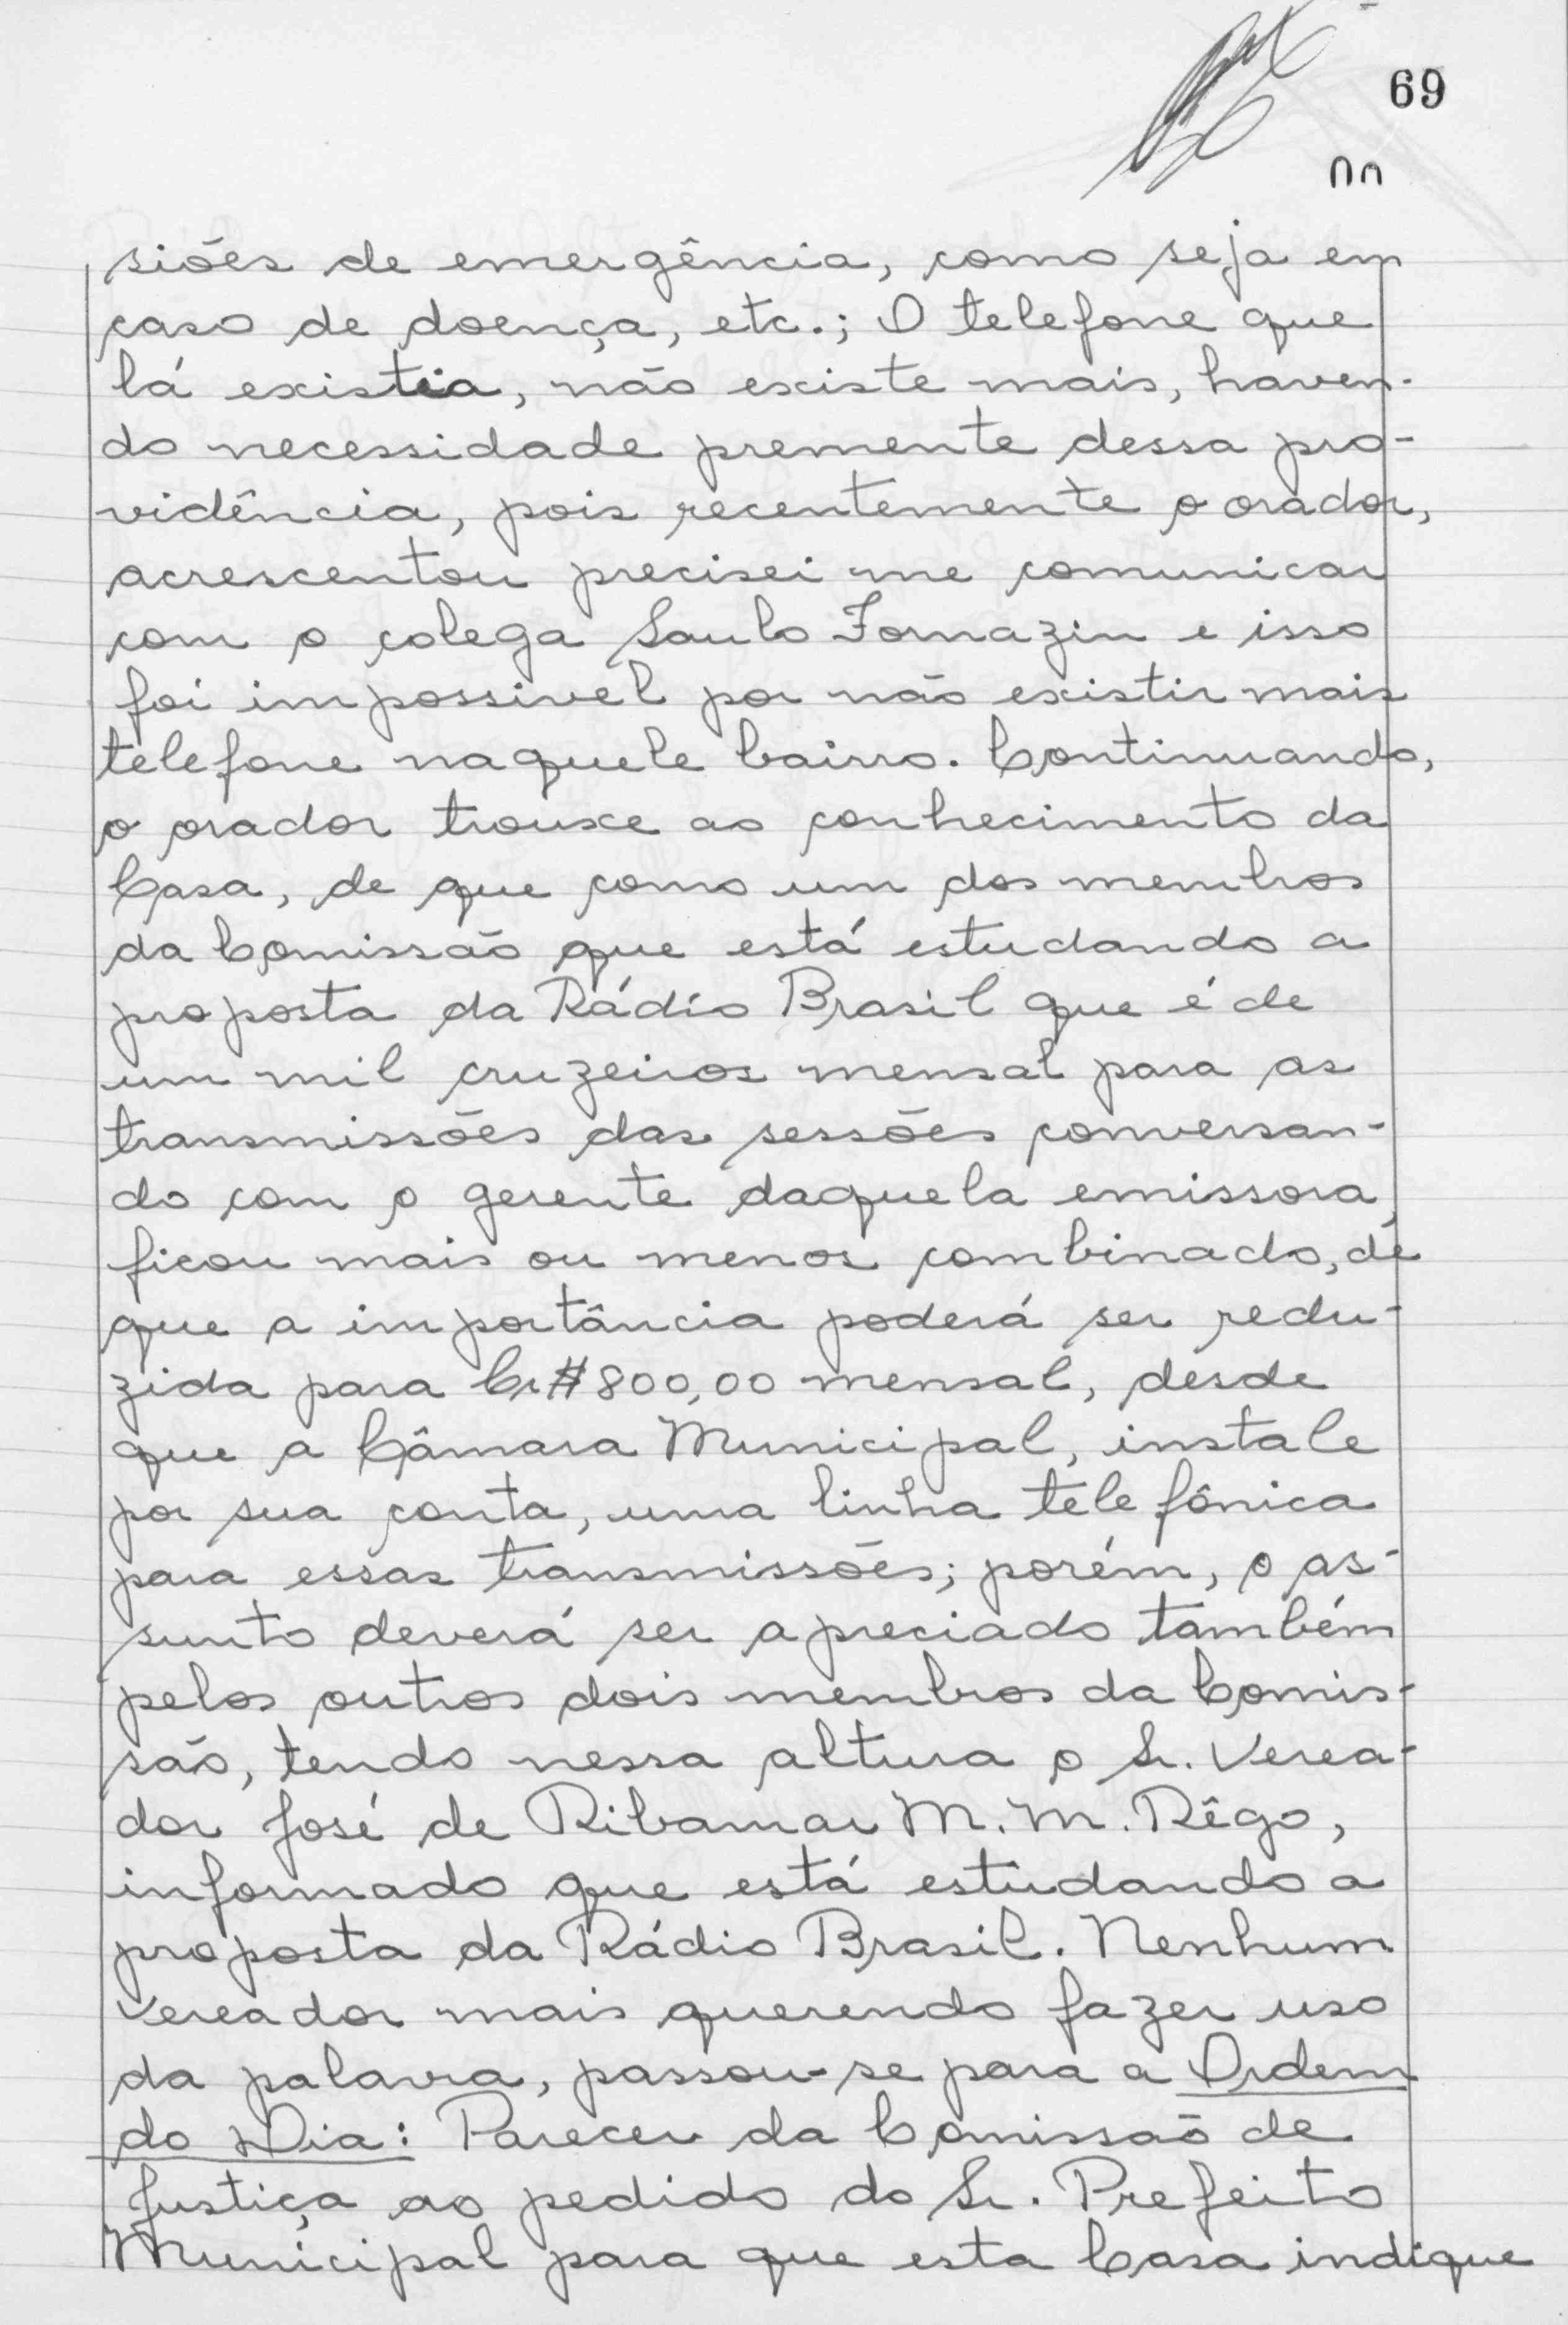 69
siões de emergência, como seja em
caso de doença, etc.; O telefone que
lá existia, não existe mais, haven-
do necessidade premente dessa pro-
vidência, pois recentemente o orador,
acrescentou precisei me comunicar
com o colega Saulo Fornazin e isso
foi impossivel por não existir mais
telefone naquele bairro. Continuando,
o orador trouxe ao conhecimento da
Casa, de que como um dos membros
da Comissão que está estudando a
proposta da Rádio Brasil que é de
um mil cruzeiros mensal para as
transmissões das sessões conversan-
do com o gerente daquela emissora,
ficou mais ou menos combinado, de
que a importância poderá ser redu-
zida para Cr$ 800,00 mensal, desde
que a Câmara Municipal, instale
por sua conta, uma linha telefônica
para essas transmissões; porém, o as-
sunto deverá ser apreciado também
pelos outros dois membros da Comis-
são, tendo nessa altura o Sr. Verea-
dor José de Ribamar M. M. Rêgo,
informado que está estudando a
proposta da Rádio Brasil. Nenhum
Vereador mais querendo fazer uso
da palavra, passou-se para a Ordem
do Dia: Parecer da Comissão de
Justiça ao pedido do Sr. Prefeito
Municipal para que esta Casa indique